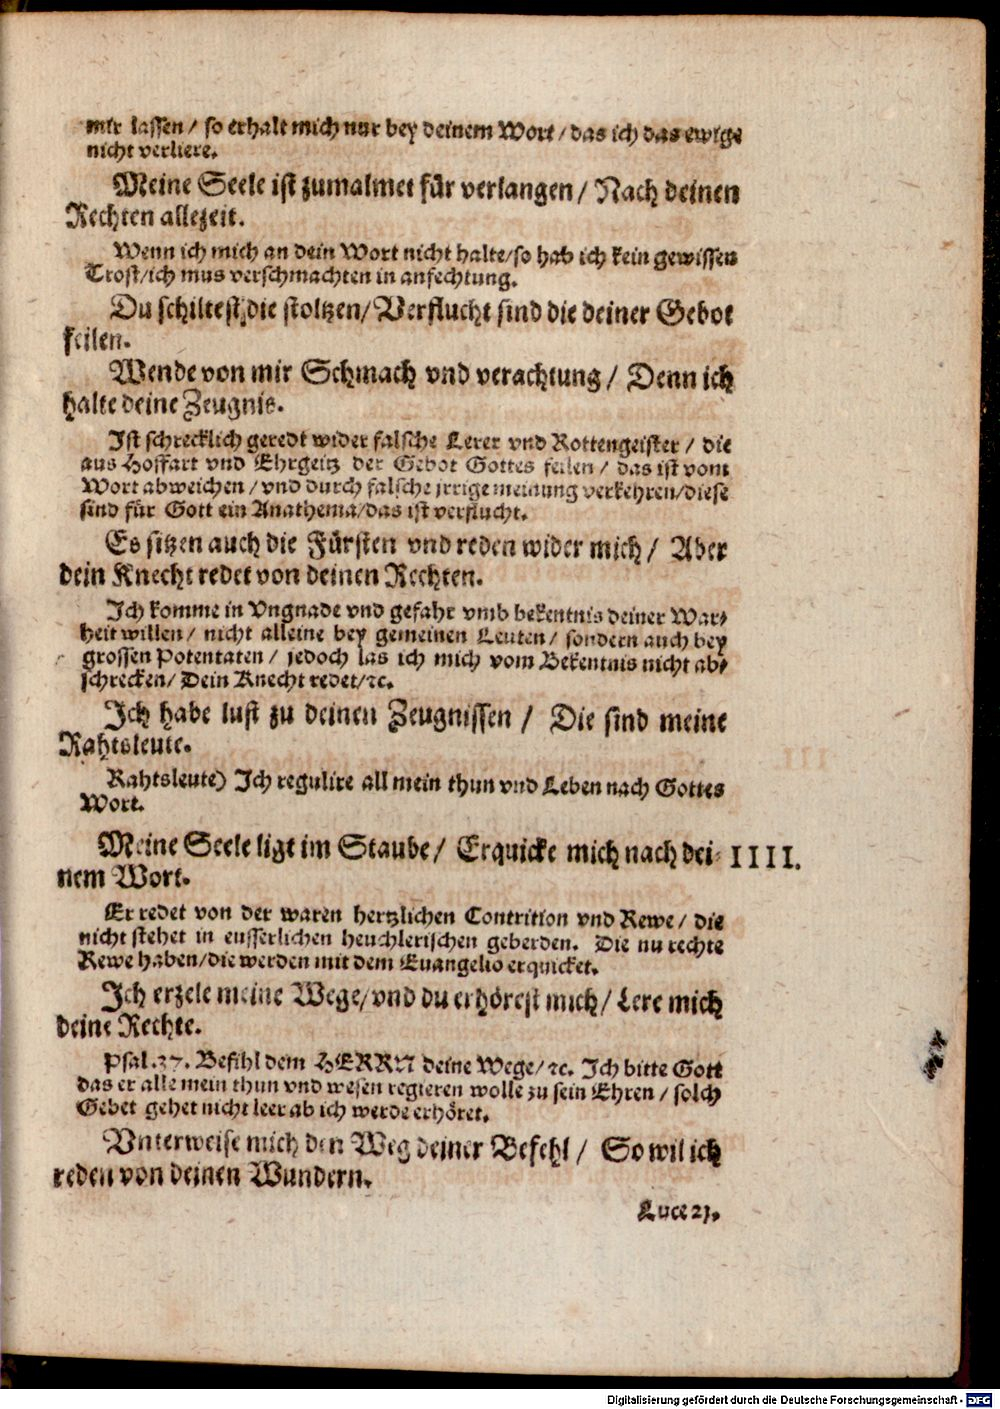 mir lassen / so erhalt mich nur bey deinem Wort / das ich das ewige
nicht verliere.
Meine Seele ist zumalmet für verlangen / Nach deinen
Rechten allezeit.
Wenn ich mich an dein Wort nicht halte/so hab ich kein gewissen
Trost/ich mus verschmachten in anfechtung.
Du schiltest die stoltzen/Verflucht sind die deiner Gebot
feilen.
Wende von mir Schmach vnd verachtung / Denn ich
halte deine Zeugnis.
Ist schrecklich geredt wider falsche Lerer vnd Rottengeister / die
aus Hoffart vnd Ehrgeitz der Gebot Gottes feilen / das ist vom
Wort abweichen / vnd durch falsche jrrige meinung verkehren/diese
sind für Gott ein Anathema/das ist verflucht.
Es sitzen auch die Fürsten vnd reden wider mich / Aber
dein Knecht redet von deinen Rechten.
Ich komme in Vngnade vnd gefahr vmb bekentnis deiner War-
heit willen / nicht alleine bey gemeinen Leuten / sondern auch bey
grossen Potentaten / jedoch las ich mich vom Bekentnis nicht ab-
schrecken/ Dein Knecht redet/ꝛc.
Ich habe lust zu deinen Zeugnissen / Die sind meine
Rahtsleute.
Rahtsleute) Ich regulire all mein thun vnd Leben nach Gottes
Wort.
Meine Seele ligt im Staube / Erquicke mich nach dei- IIII.
nem Wort.
Er redet von der waren hertzlichen Contrition vnd Rewe / die
nicht stehet in eusserlichen heuchlerischen geberden. Die nu rechte
Rewe haben/die werden mit dem Euangelio erquicket.
Ich erzele meine Wege/vnd du erhörest mich/ Lere mich
deine Rechte.
Psal. 37. Befihl dem HERRN deine Wege/ꝛc. Ich bitte Gott
das er alle mein thun vnd wesen regieren wolle zu sein Ehren / solch
Gebet gehet nicht leer ab ich werde erhöret.
Vnterweise mich den Weg deiner Befehl / So wil ich
reden von deinen Wundern.
Luce 21.
Digitalisierung gefördert durch die Deutsche Forschungsgemeinschaft - DFG